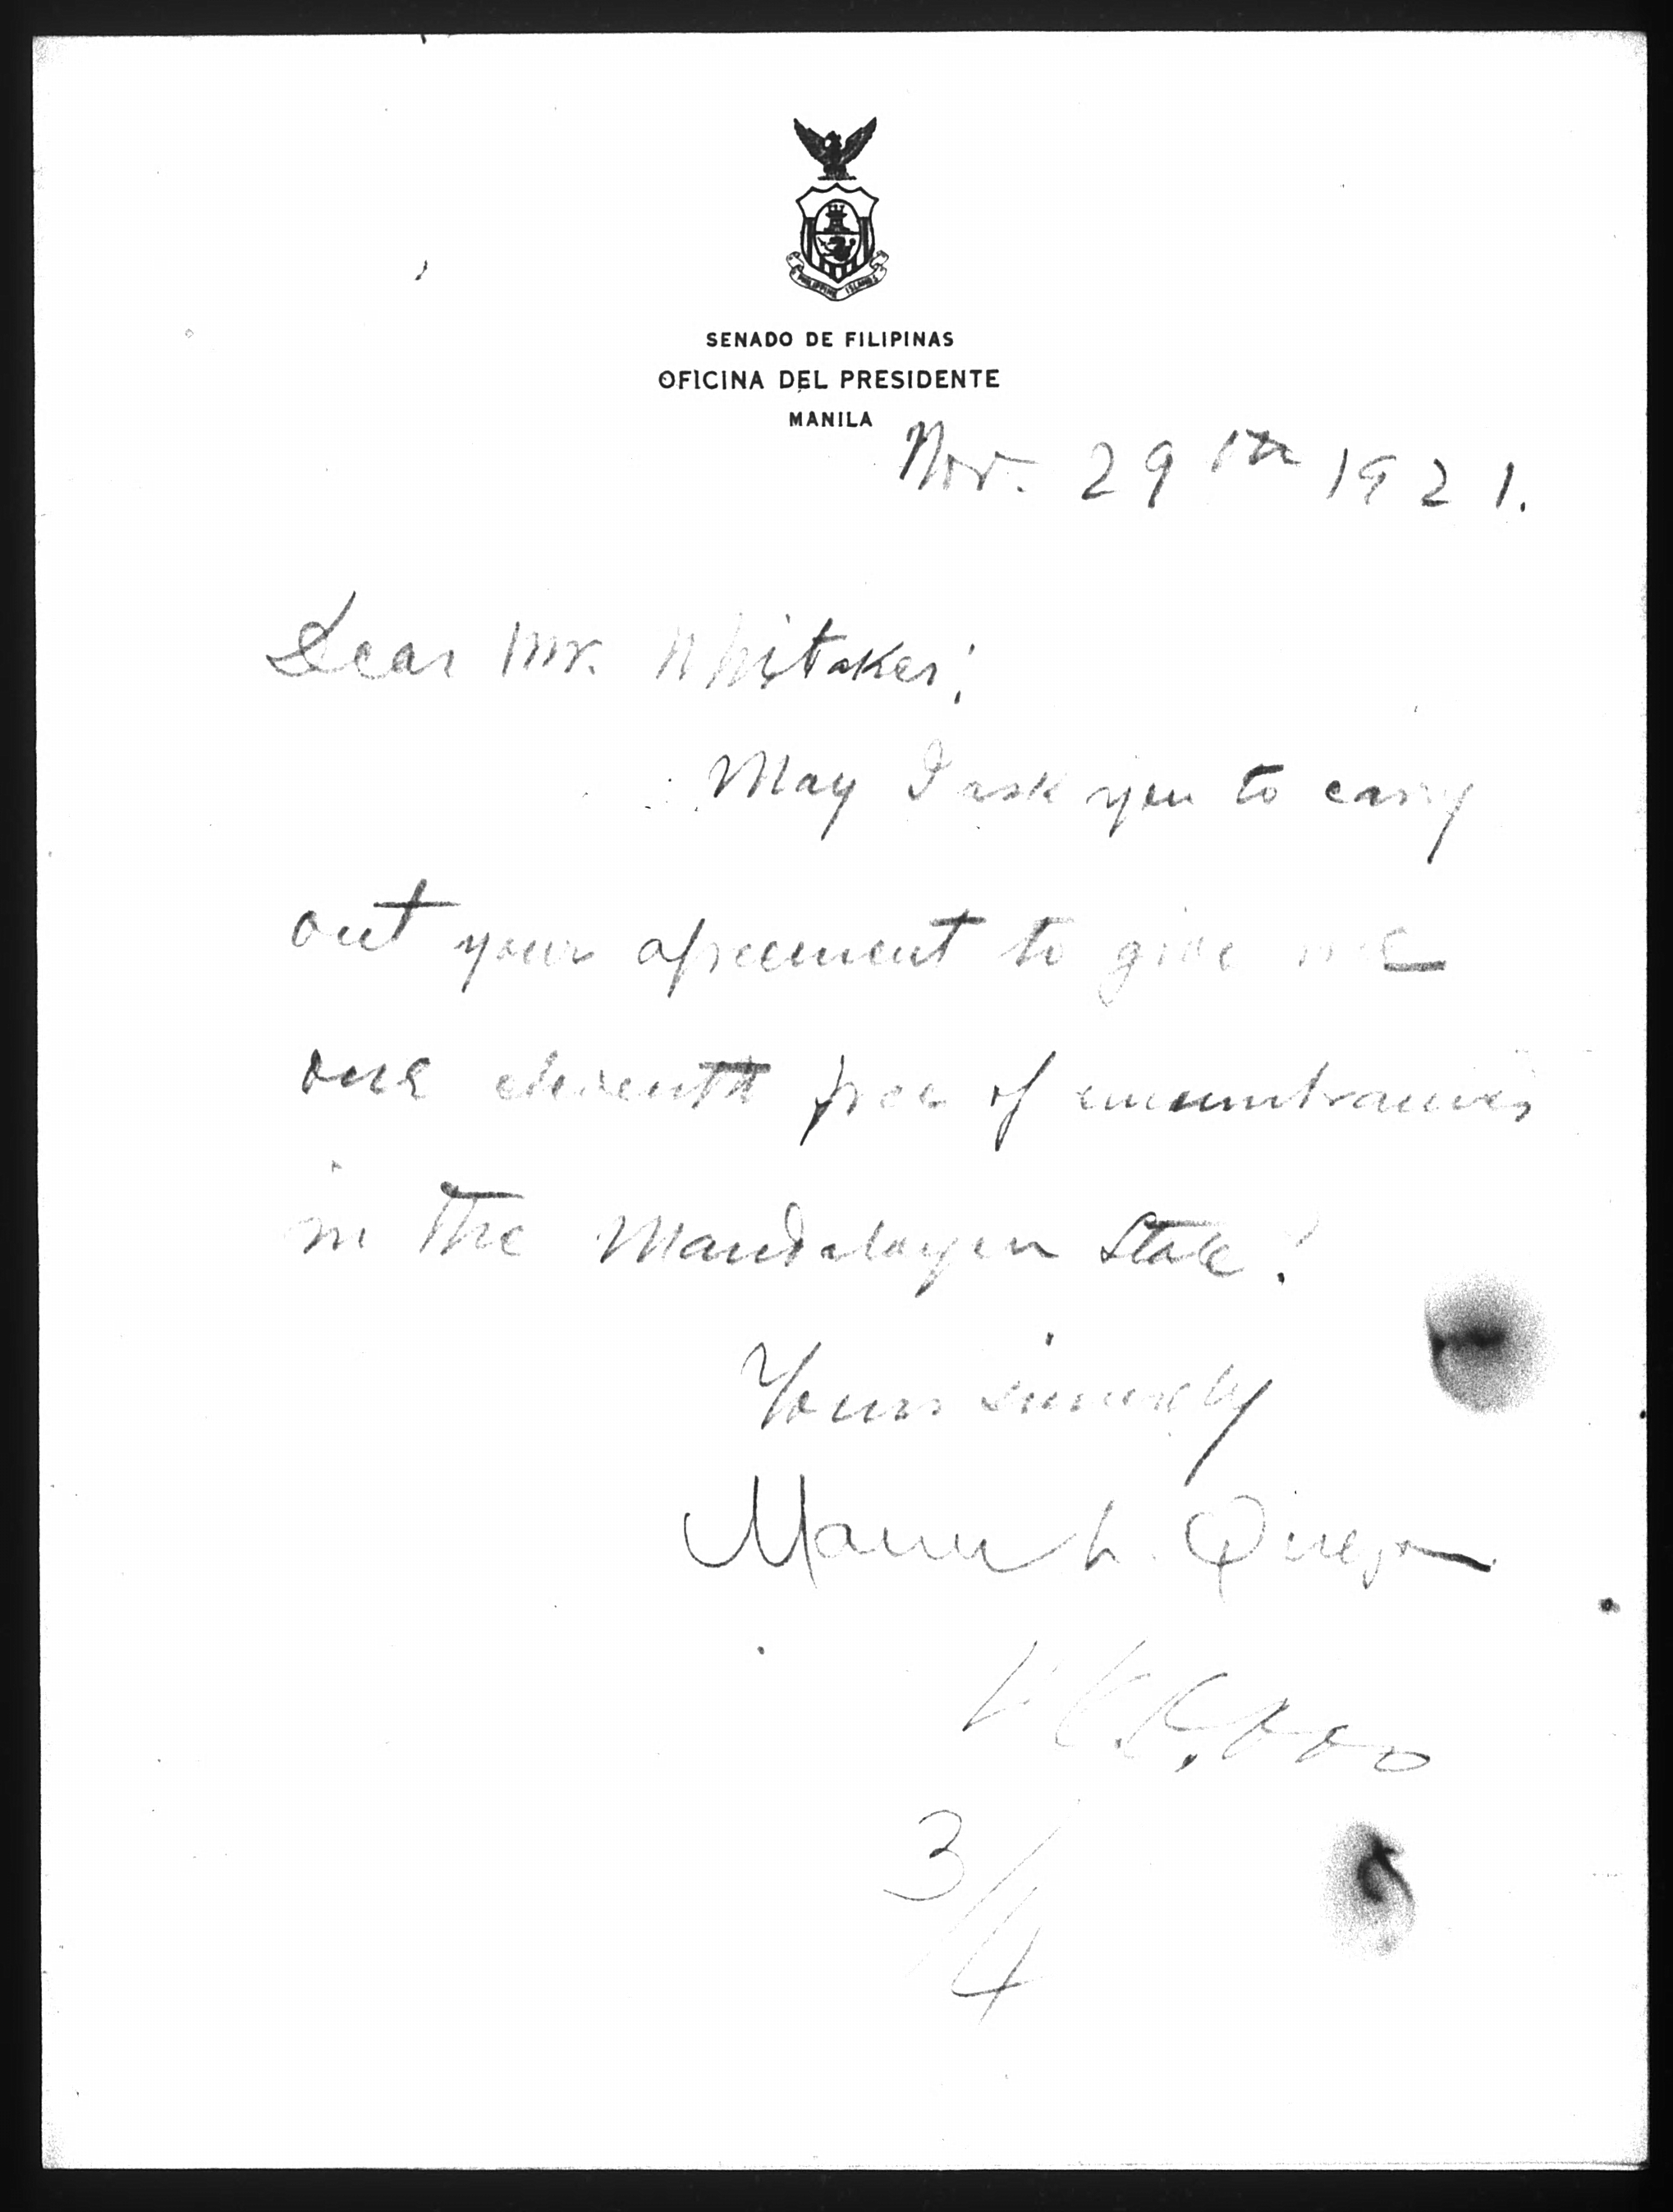 PHILIPPINE ISLANDS
SENADO DE FILIPINAS
OFICINA DEL PRESIDENTE
MANILA
Nov. 29th 1921.
Dear Mr. Whitaker:
May I ask you to carry
out your agreement to give me
one eleventh free of encumbrances
in the Mandaloyen State?
Yours sincerely
Manuel L. Quezon
3/4